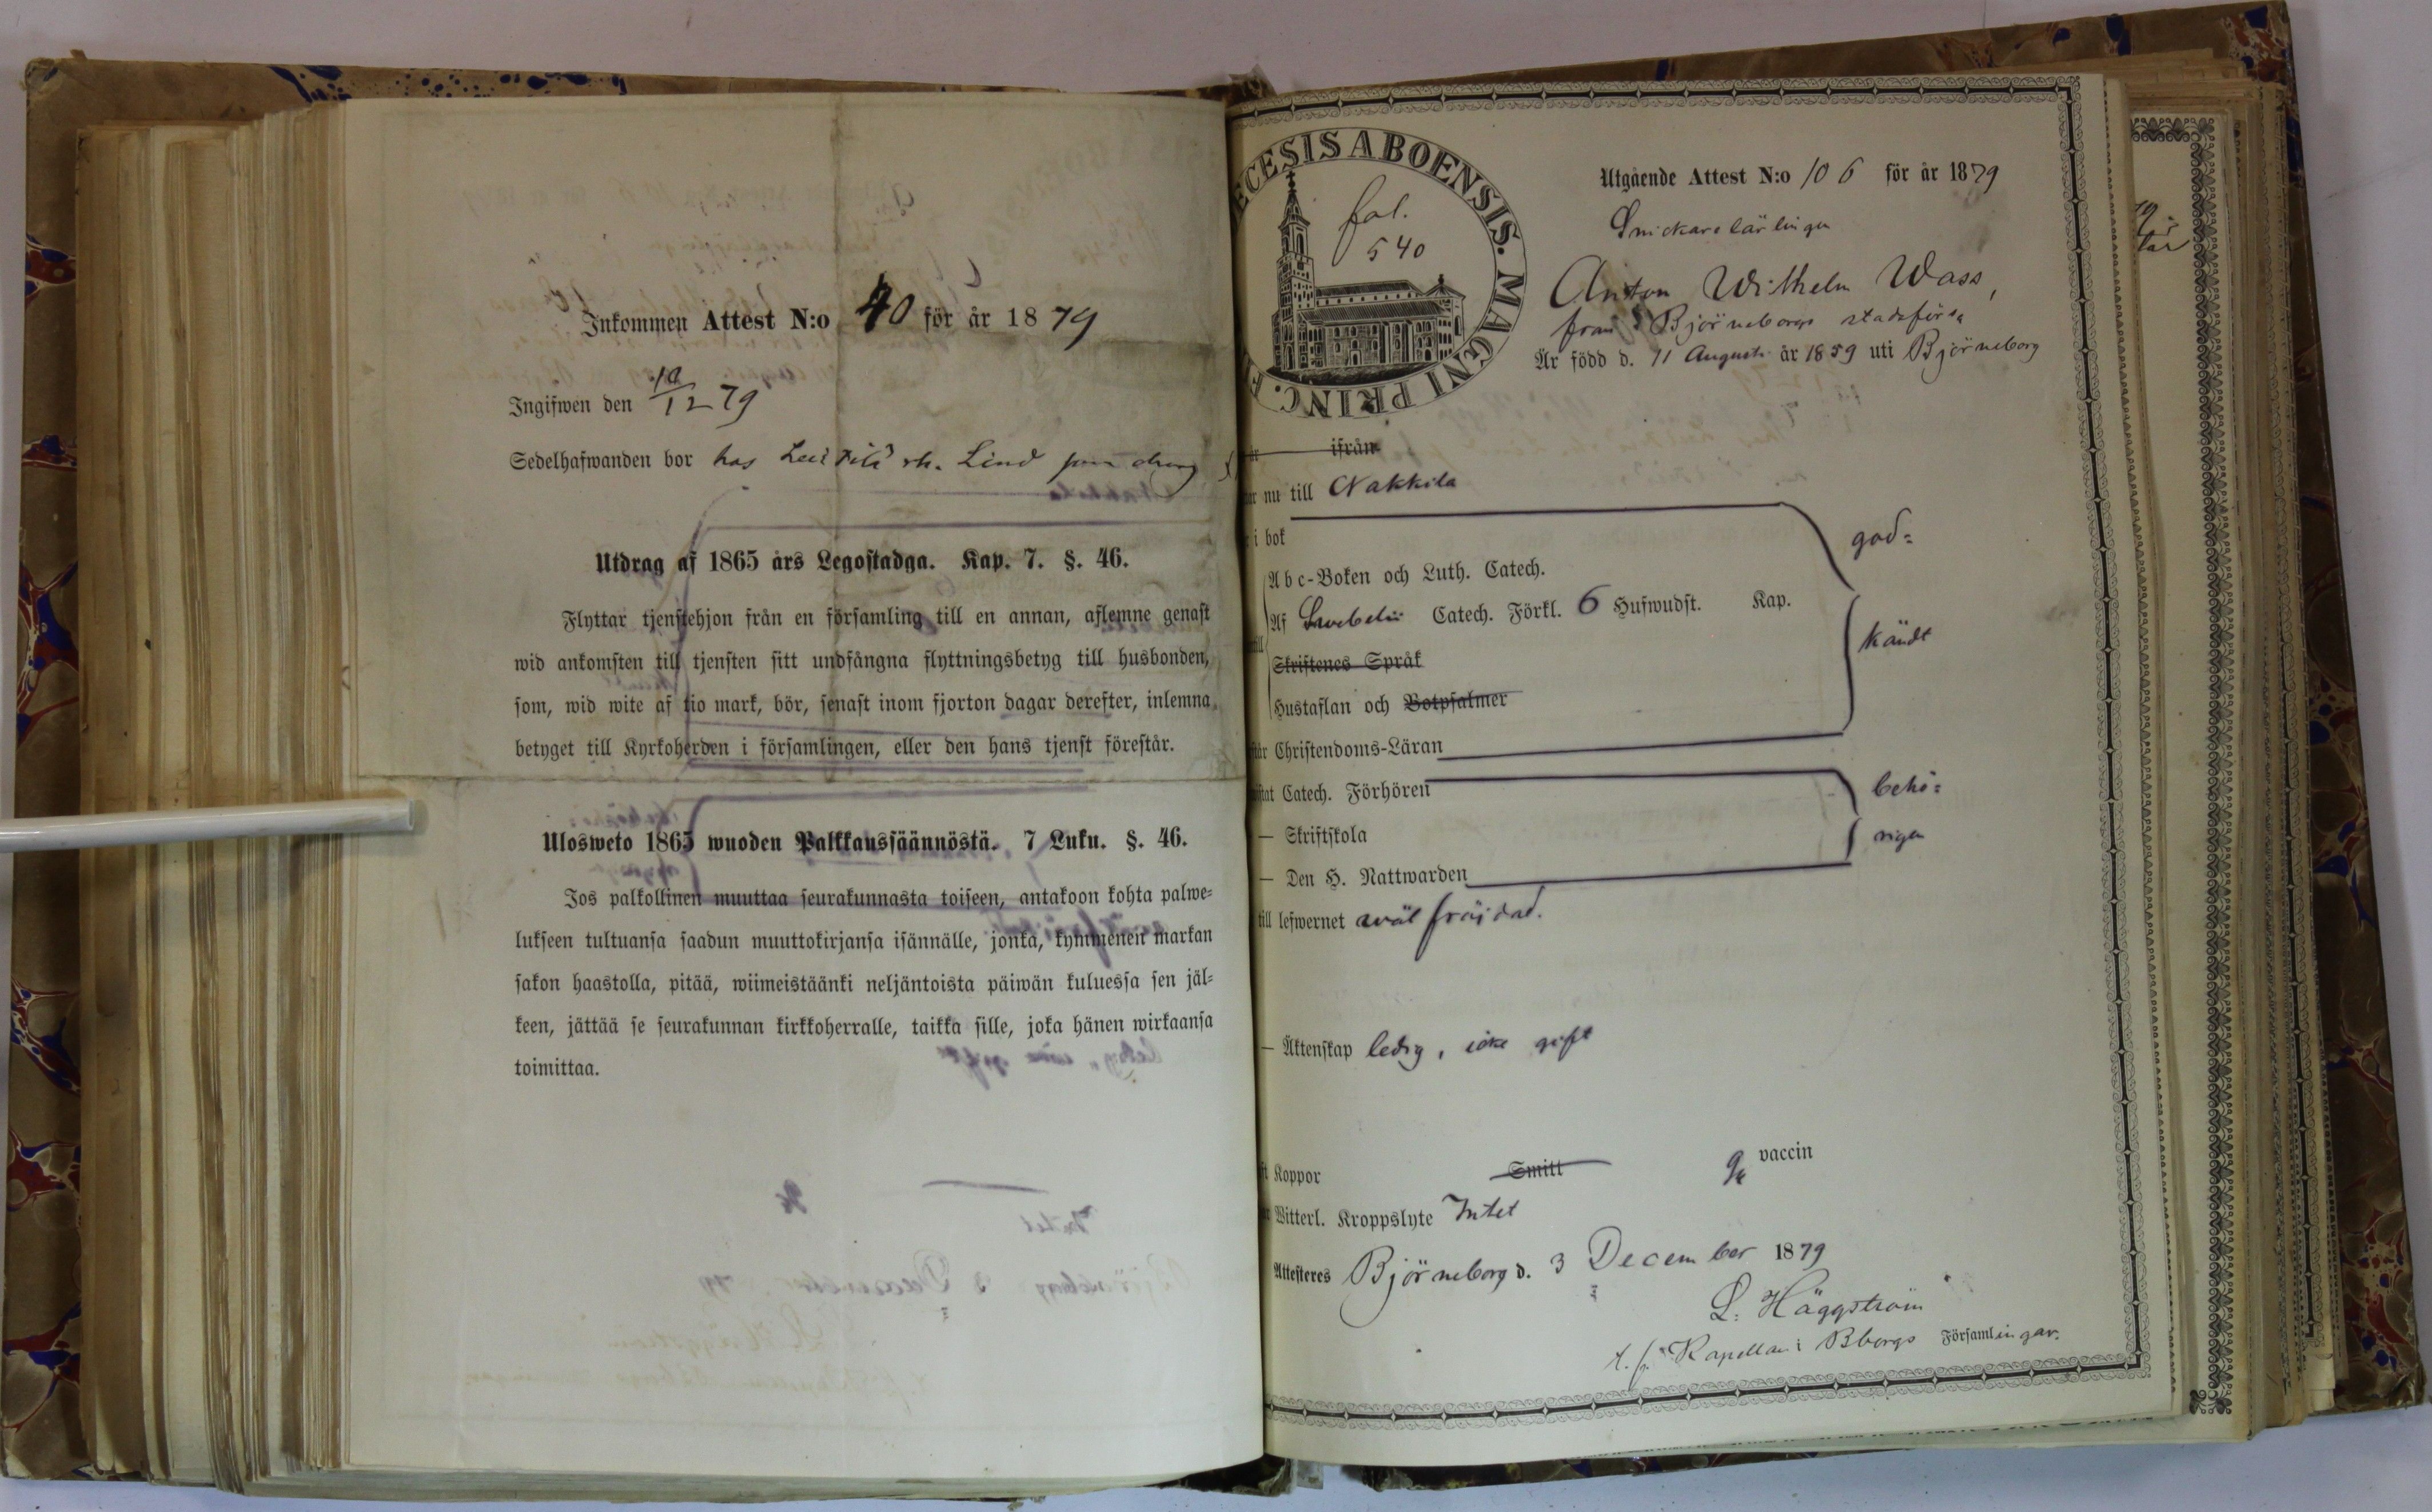 Inkommen Attest N:o 40 för år 1879
Ingifwen den 10/12 79
Sedelhafwanden bor hos
Utdrag af 1865 års Legostadga. Kap. 7. §. 46.
Flyttar tjenstehjon från en församling till en annan, aflemne genast
wid ankomsten till tjensten sitt undfångna flyttningsbetyg till husbonden,
som, wid wite af tio mark, bör, senast inom fjorton dagar derefter, inlemna
betyget till Kyrkoherden i församlingen, eller den hans tjenst förestår.
Ulosweto 1865 wuoden Palkkaussäännöstä. 7 Luku. §. 46.
Jos palkollinen muuttaa seurakunnasta toiseen, antakoon kohta palwe-
lukseen tultuansa saadun muuttokirjansa isännälle, jonka, kymmenen markan
sakon haastolla, pitää, wiimeistäänki neljäntoista päiwän kuluessa sen jäl-
keen, jättää se seurakunnan kirkkoherralle, taikka sille, joka hänen wirkaansa
toimittaa.
ECESIS ABOENSIS. MAGNI PRINC. F
fol.
540
Utgående Attest N:o 106 för år 1879
Snickarelärlingen
Anton Wilhelm Wass,
från Björneborgs stadsförs.
Är född d. 11 Augusti år 1859 uti Björneborg
ifrån
nu till Nakkila
i bok
god=
Abc-Boken och Luth. Catech.
Af Svebelii Catech. Förkl. 6 Hufwudst. Kap.
kändt
Skriftenes Språk
Hustaflan och Botpsalmer
Christendoms-Läran
Catech. Förhören
behö=
— Skriftskola
rigen
— Den H. Nattwarden
till lefwernet wäl fräjdad.
— Äktenskap ledig, icke gift
Koppor Smitt vaccin
Witterl. Kroppslyte Intet
Attesteres Björneborg d. 3 December 1879
L. Häggström
t. f. Kapellan i Bborgs Församlingar.